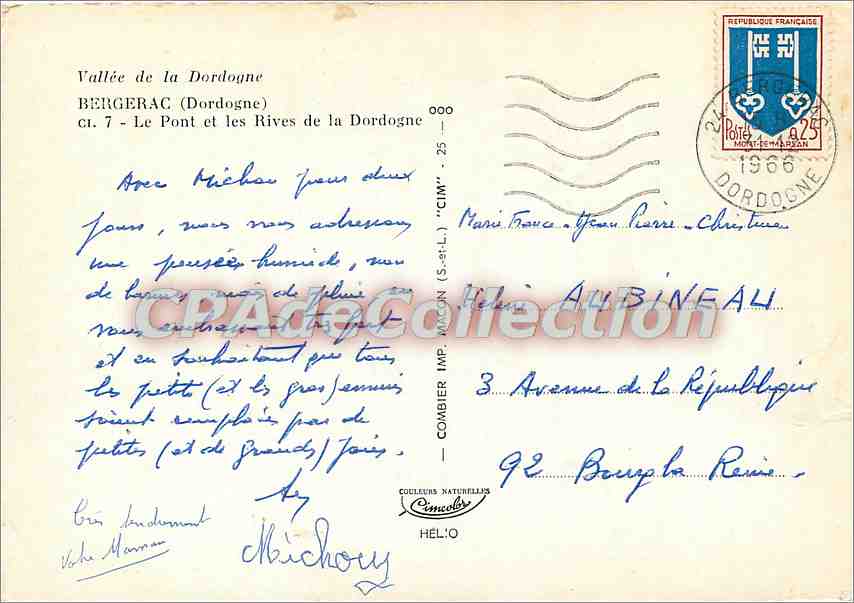 Vallée de la Dordogne
BERGERAC (Dordogne)
CI. 7 - Le Pont et les Rives de la Dordogne
Avec Michou pour deux
jours, nous vous adressons
une pensée humide, non
de larmes mais de pluie, en
vous embrassant très fort
et en souhaitant que tous
les petits (et les gros) ennuis
soient remplacés par de
petites (et de grands) joies.
Michou
Très tendrement
Votre Maman
— COMBIER IMP. MACON (S.-et-L.) "CIM" - 25 — 000
COULEURS NATURELLES
Cimcolor
HÉLIO
REPUBLIQUE FRANÇAISE
POSTES 0,25
MONT-DE-MARSAN
24 BERGERAC
1966
DORDOGNE
Marie France - Jean Pierre - Christine
Hélène AUBINEAU
3 Avenue de la République
92 Bourg la Reine.
CPAdeCollection